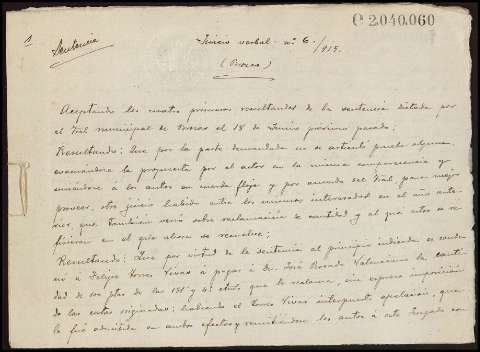 C 2.040.060
1
Sentencia
Juicio verbal nº 6/915.
(Porres)
Aceptando los cuatro primeros resultandos de la sentencia dictada por
el Tral municipal de el 18 de Junio próximo pasado;
Resultando: Que por la parte demandada no se articuló prueba alguna,
evacuandose la propuesta por el actor en la misma comparecencia y
uniendose á los autos en cuerda floja y por acuerdo del Tral para mejor
proveer, otro juicio habido entre los mismos interesados en el año ante-
rior, que tambien versó sobre reclamación de cantidad y al que estos se re-
firieron en el que ahora se resuelve;
Resultando: Que por virtud de la sentencia al principio indicada se conde-
nó á Felipe Torres Vivas á pagar á Dn. José Rosado Valenciano la canti-
dad de ptas de las 158 y 4 ctvos que le reclama, sin expresa imposición
de las costas originadas; habiendo el Torres Vivas interpuesto apelación, que
le fué admitida en ambos efectos y remitiendose los autos á este Juzgado con